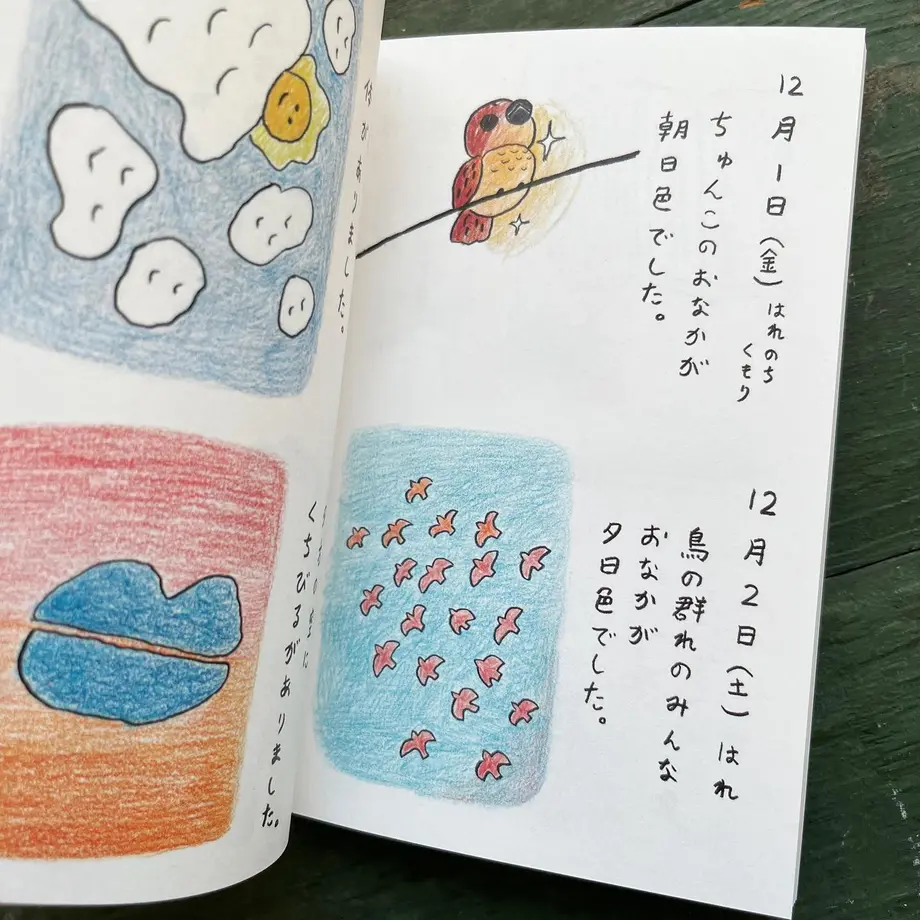 12月1日（金）はれのち
くもり
ちゅんこのおなかが
朝日色でした。
12月2日（土）はれ
鳥の群れのみんな
おなかが
夕日色でした。
がありました。
の空に
くちびるがありました。